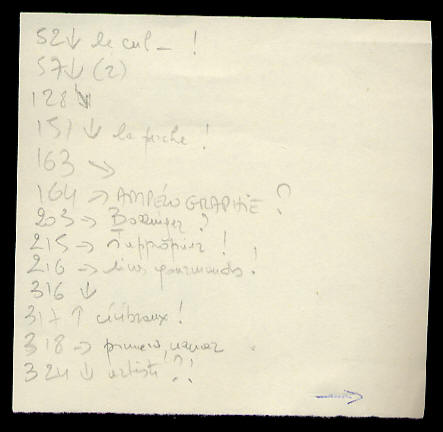 52 ↓ le cul – !
57 ↓ (2)
128 ↓
151 ↓ la poche !
163 →
164 → AMPÉLOGRAPHIE ?
203 → Bollinger ?
215 → s'approprier !
216 → gourmands !
316 ↓
317 ↑ cérébraux !
318 → premiers
324 ↓ artiste ?!
→